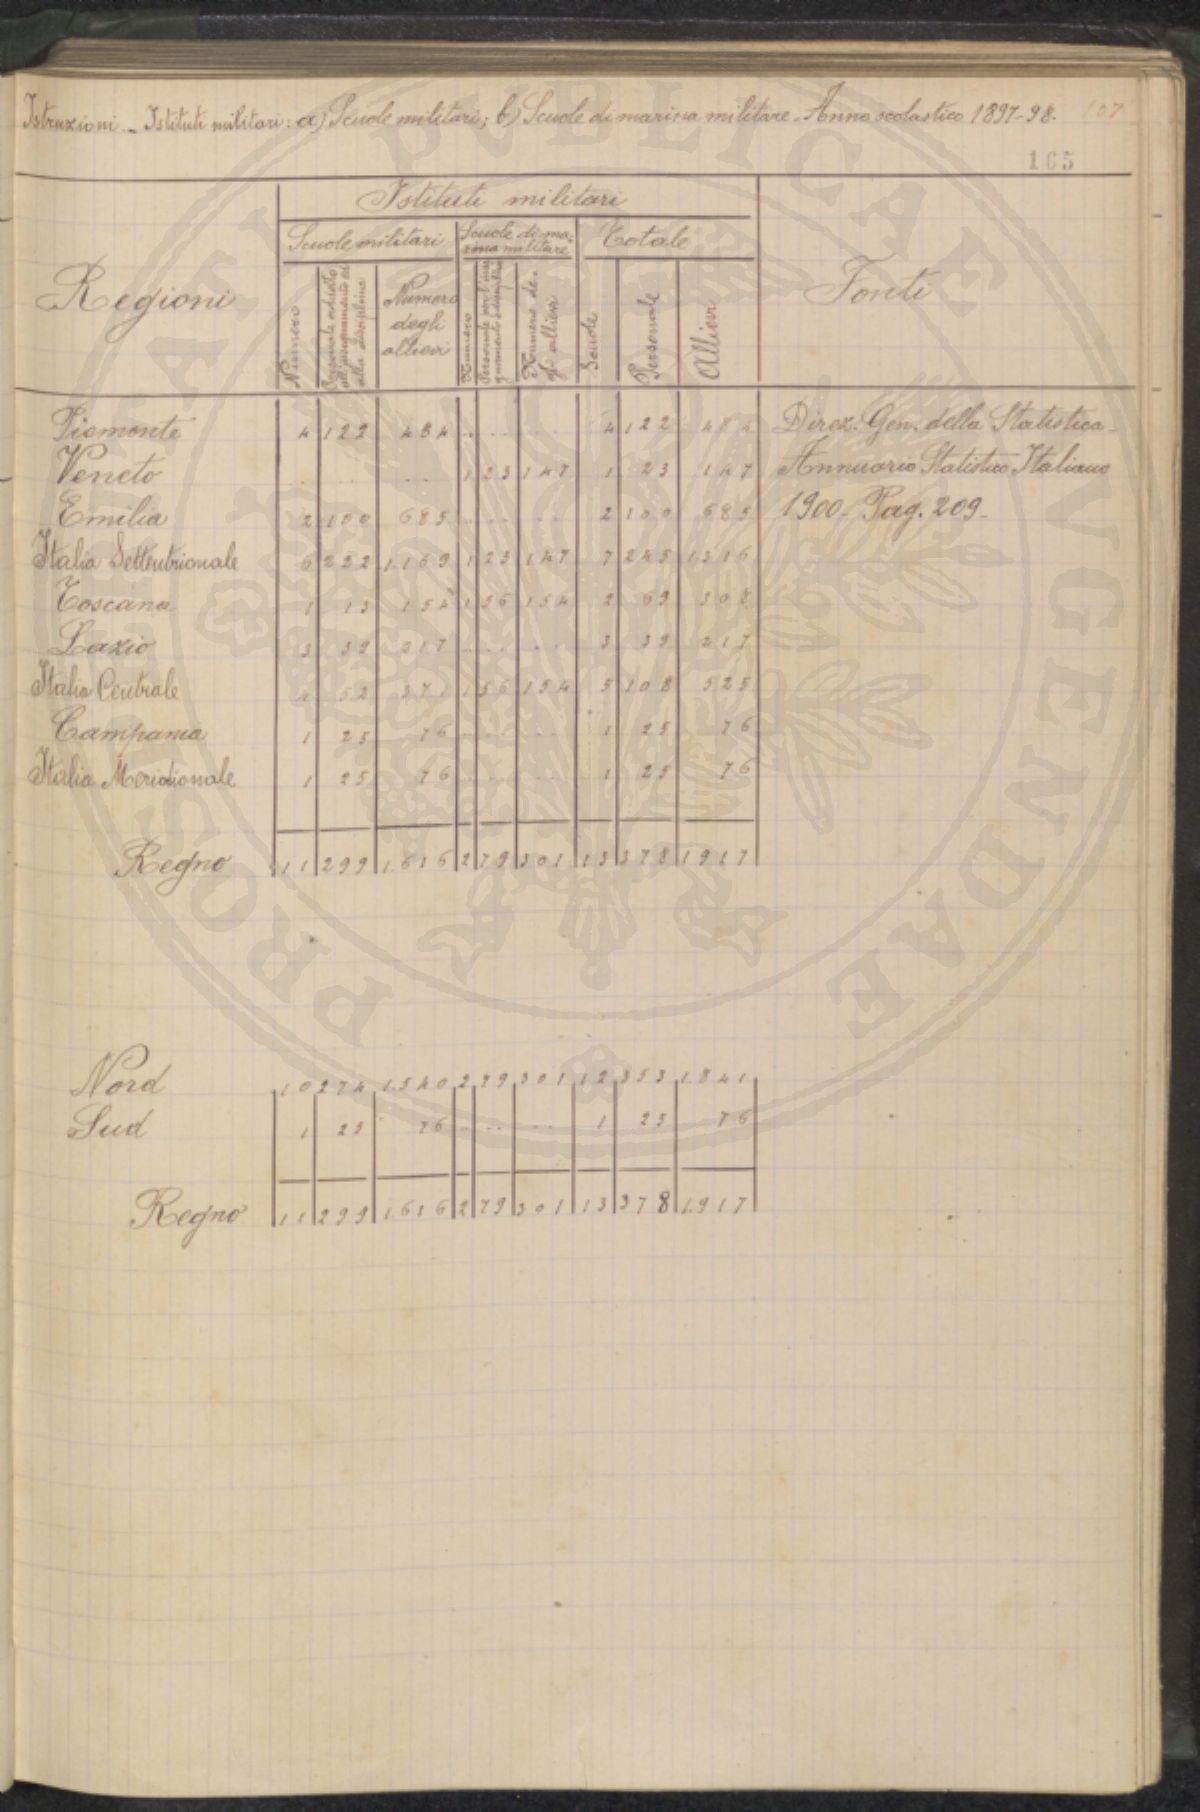 Istruzioni - Istituti militari: a) Scuole militari; b) Scuole di marina militare - Anno scolastico 1897-98. 107
165
Regioni
Istituti militari
Fonti
Scuole militari
Scuole di marina militare
Totale
Numero
Personale addetto all'insegnamento ed alla disciplina
Numero degli allievi
Numero
Numero degli allievi
Scuole
Personale
Allievi
Piemonte 4 122 484 .. .. .. 4 122 484 Direz. Gen. della Statistica -
Veneto .. .. .. 1 23 147 1 23 147 Annuario Statistico Italiano
Emilia 2 100 685 .. .. .. 2 100 685 1900 - Pag. 209 -
Italia Settentrionale 6 222 1.169 1 23 147 7 245 1.316
Toscana 1 13 154 1 56 154 2 69 308
Lazio 3 39 217 .. .. .. 3 39 217
Italia Centrale 4 52 371 1 56 154 5 108 525
Campania 1 25 76 .. .. .. 1 25 76
Italia Meridionale 1 25 76 .. .. .. 1 25 76
Regno 11 299 1.616 2 79 301 13 378 1.917
Nord 10 274 1.540 2 79 301 12 353 1.841
Sud 1 25 76 .. .. .. 1 25 76
Regno 11 299 1.616 2 79 301 13 378 1.917